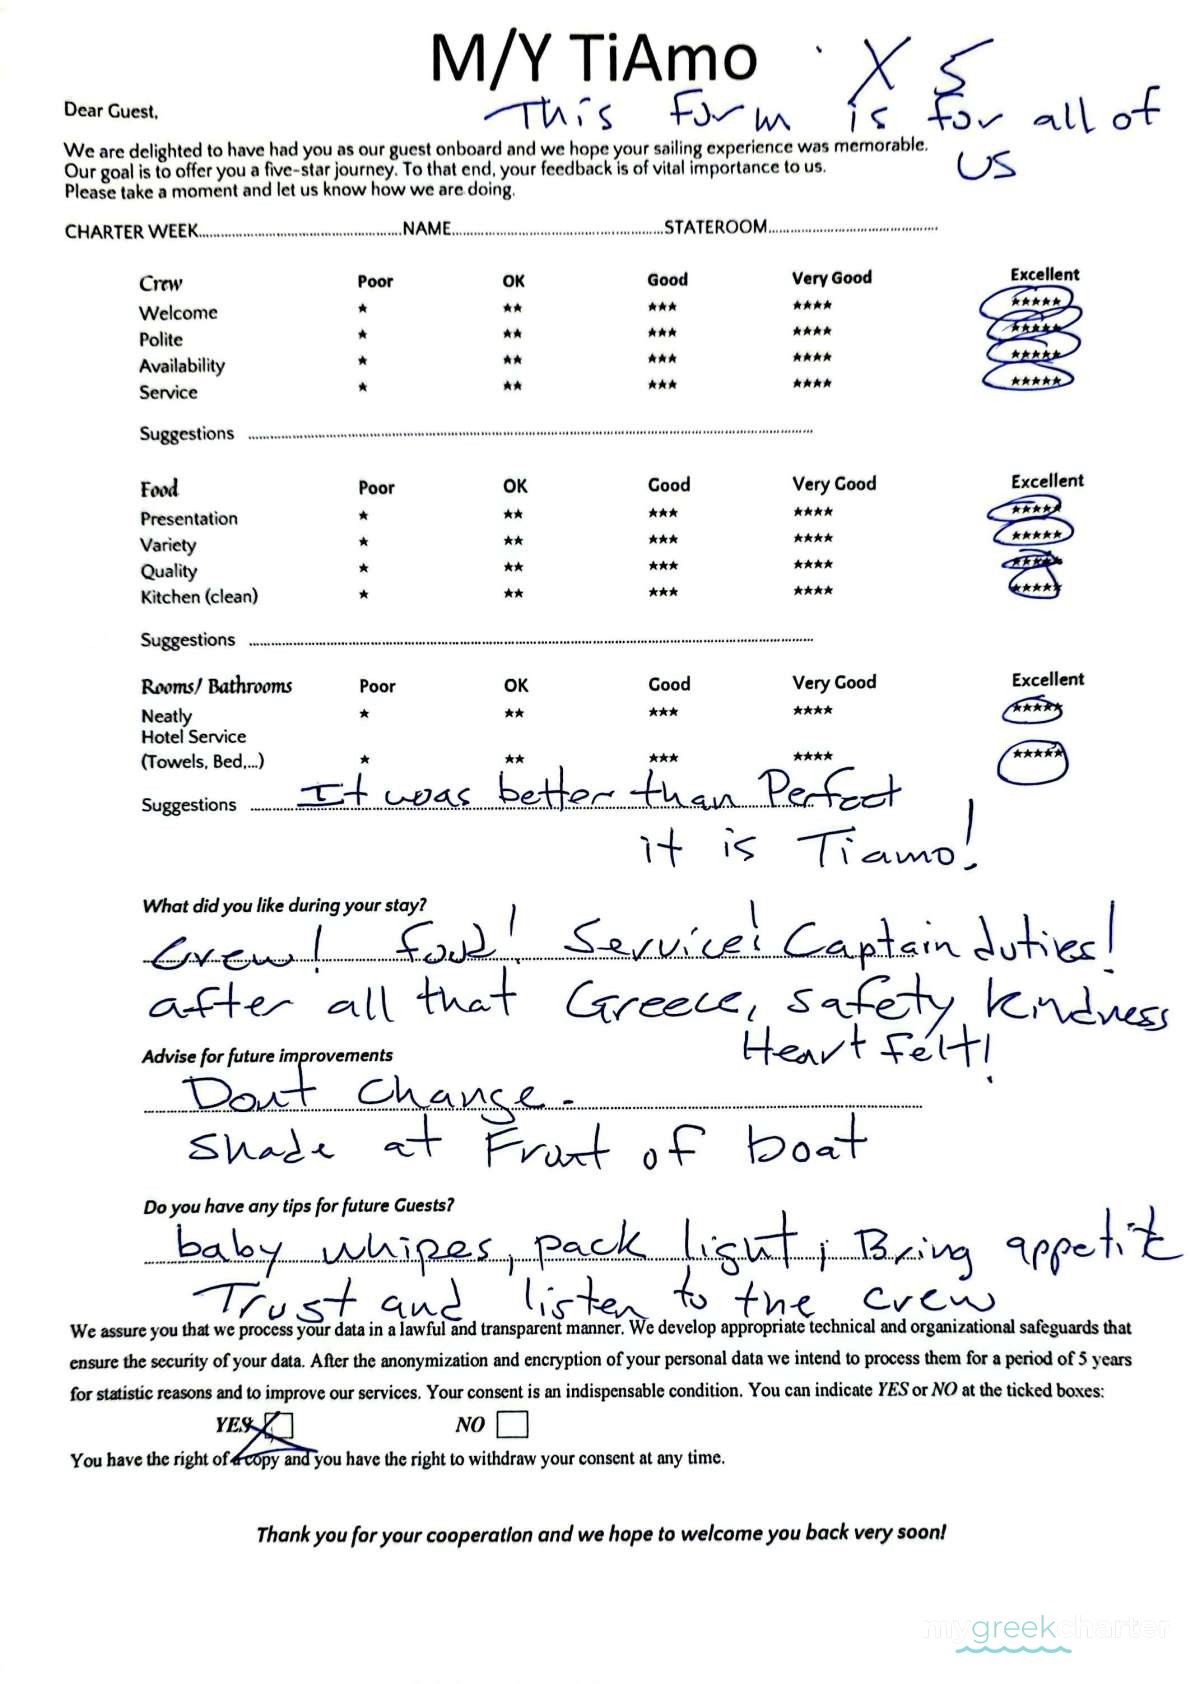 M/Y TiAmo
X 5
This form is for all of
us
Dear Guest,
We are delighted to have had you as our guest onboard and we hope your sailing experience was memorable.
Our goal is to offer you a five-star journey. To that end, your feedback is of vital importance to us.
Please take a moment and let us know how we are doing.
CHARTER WEEK..........NAME..........STATEROOM..........
Crew Poor OK Good Very Good Excellent
Welcome ★ ★★ ★★★ ★★★★ ★★★★★
Polite ★ ★★ ★★★ ★★★★ ★★★★★
Availability ★ ★★ ★★★ ★★★★ ★★★★★
Service ★ ★★ ★★★ ★★★★ ★★★★★
Suggestions ..........
Food Poor OK Good Very Good Excellent
Presentation ★ ★★ ★★★ ★★★★ ★★★★★
Variety ★ ★★ ★★★ ★★★★ ★★★★★
Quality ★ ★★ ★★★ ★★★★ ★★★★★
Kitchen (clean) ★ ★★ ★★★ ★★★★ ★★★★★
Suggestions ..........
Rooms/ Bathrooms Poor OK Good Very Good Excellent
Neatly ★ ★★ ★★★ ★★★★ ★★★★★
Hotel Service
(Towels, Bed,...) ★ ★★ ★★★ ★★★★ ★★★★★
Suggestions It was better than Perfect
it is Tiamo!
What did you like during your stay?
Crew! food! Service! Captain duties!
after all that Greece, safety kindness
Heart felt!
Advise for future improvements
Dont Change.
Shade at Front of boat
Do you have any tips for future Guests?
baby whipes, pack light, Bring appetite
Trust and listen to the crew
We assure you that we process your data in a lawful and transparent manner. We develop appropriate technical and organizational safeguards that
ensure the security of your data. After the anonymization and encryption of your personal data we intend to process them for a period of 5 years
for statistic reasons and to improve our services. Your consent is an indispensable condition. You can indicate YES or NO at the ticked boxes:
YES NO
You have the right of copy and you have the right to withdraw your consent at any time.
Thank you for your cooperation and we hope to welcome you back very soon!
mygreekcharter